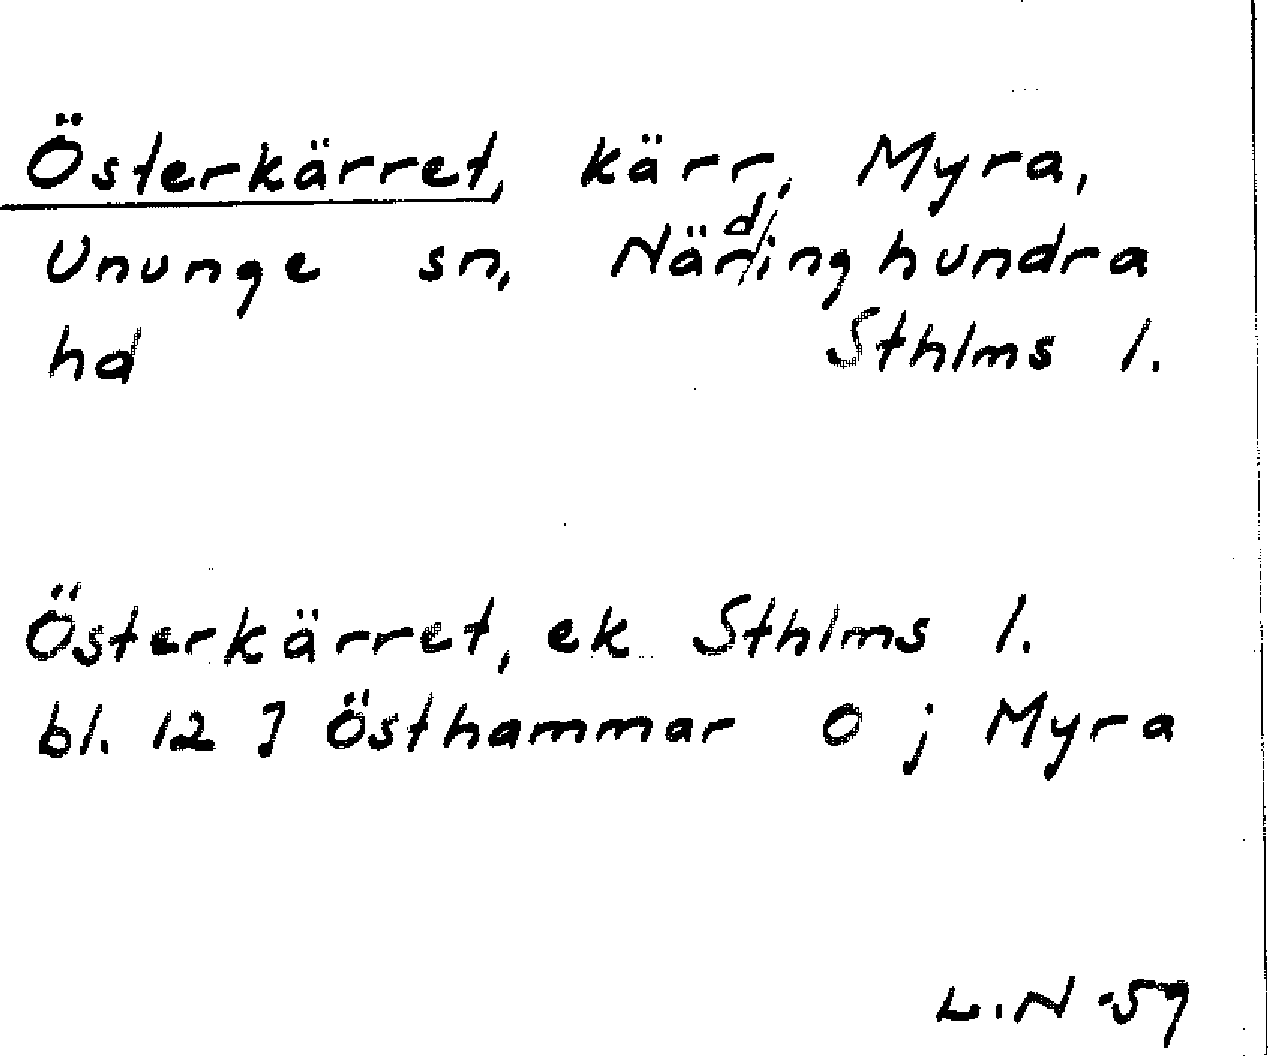 Österkärret, kärr, Myra,
Ununge sn, Närdinghundra
hd Sthlms l.
Österkärret, ek Sthlms l.
bl. 12 J Östhammar O ; Myra
L.N -59